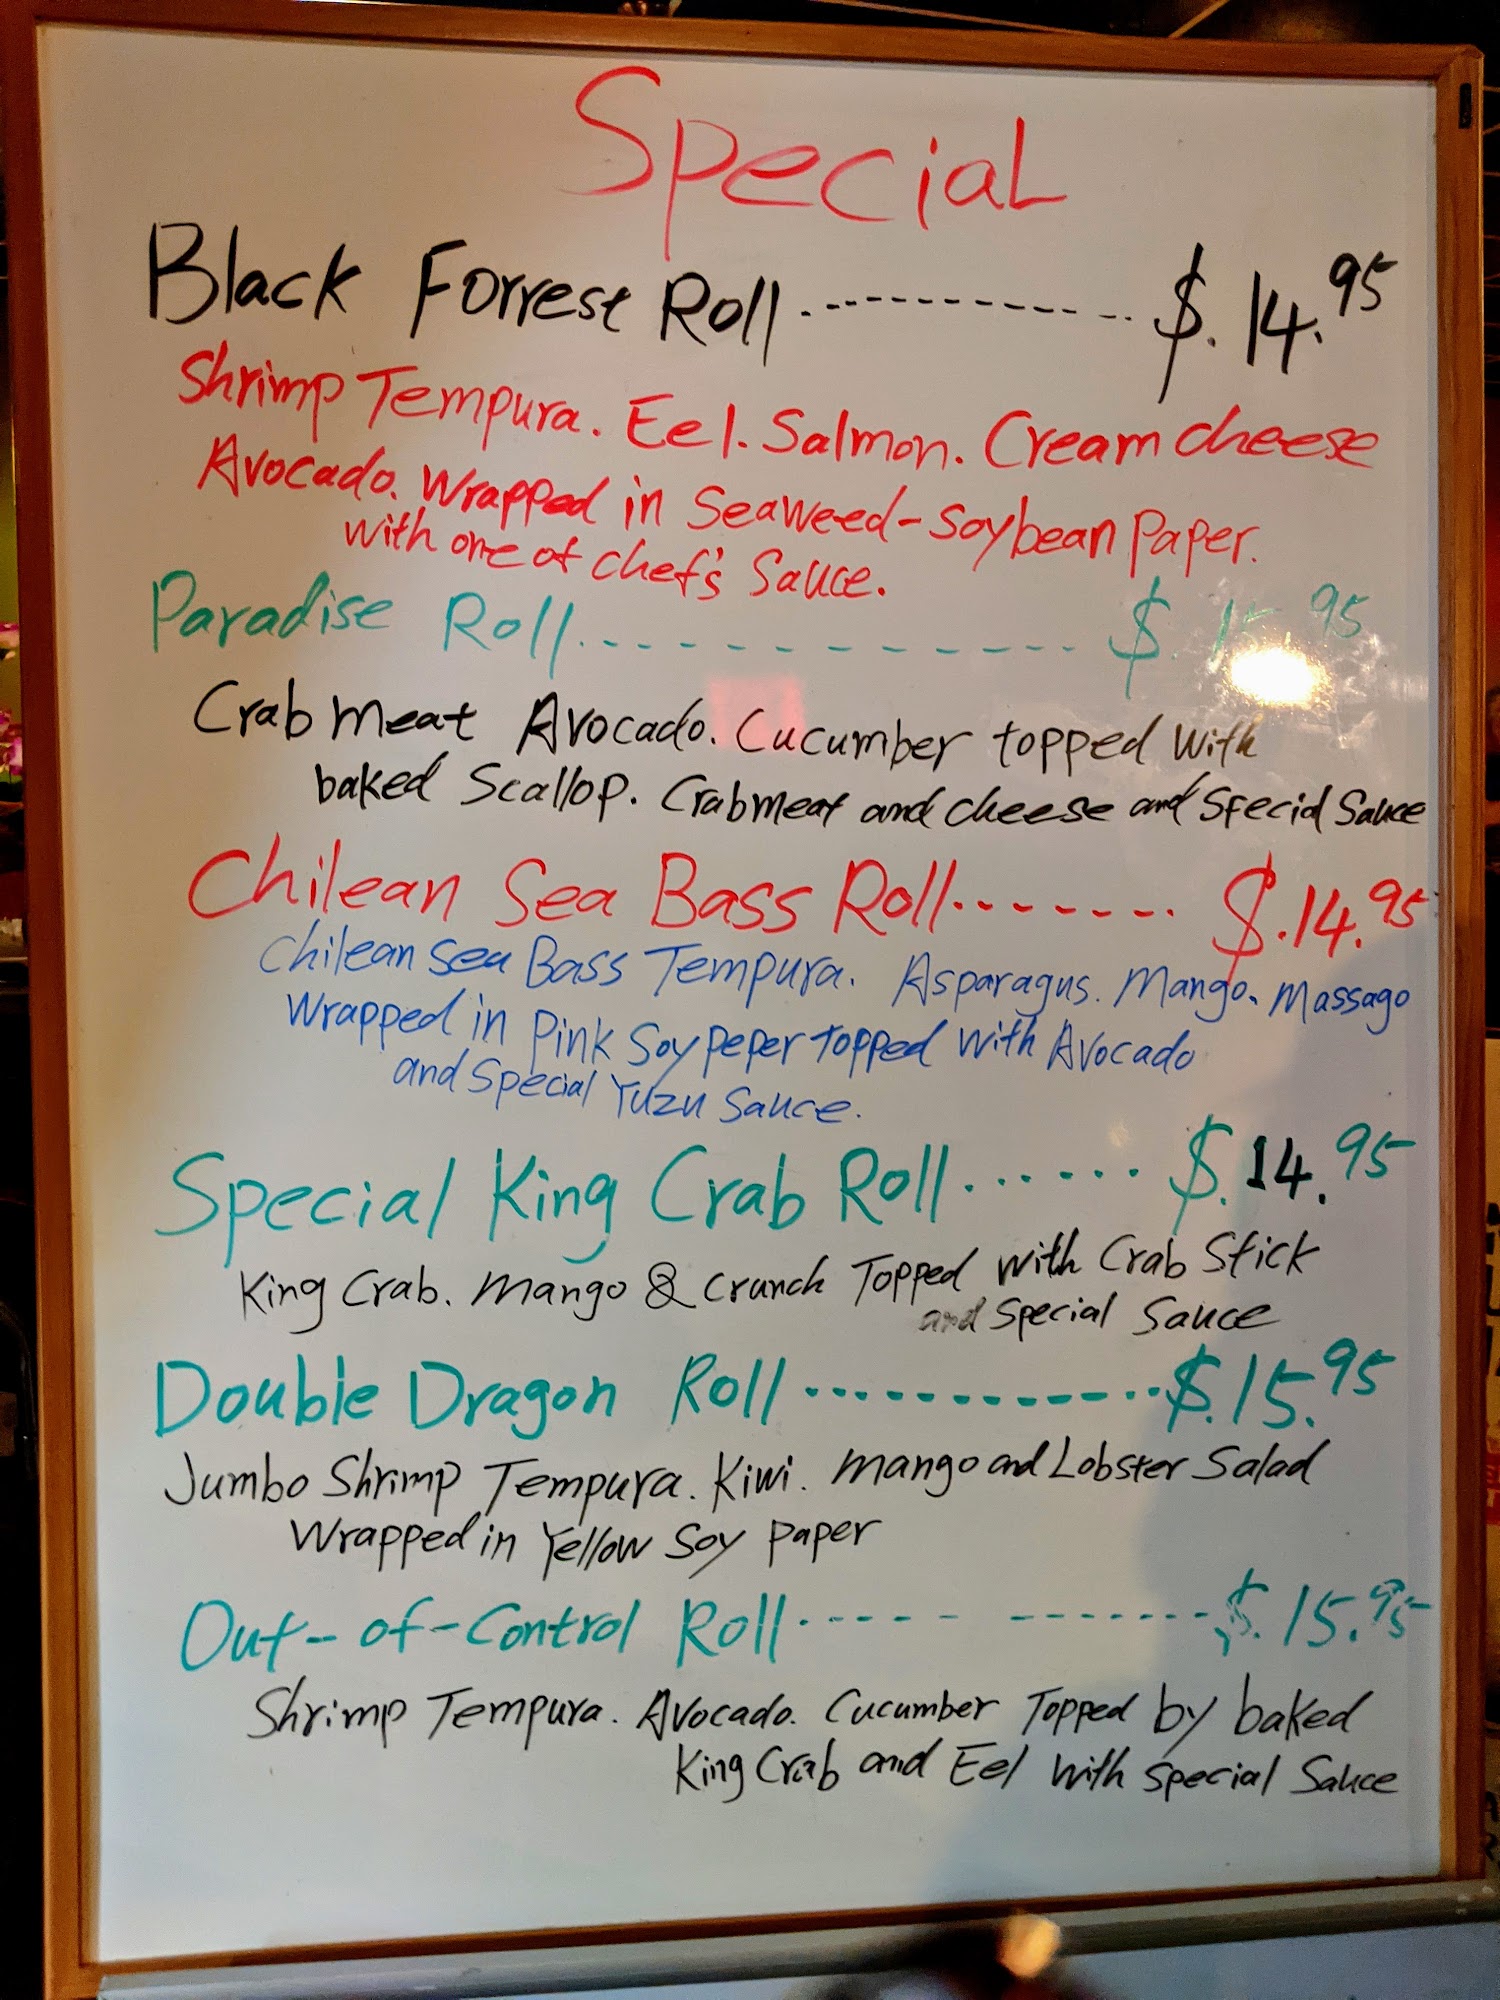 Special
Black Forrest Roll ----------- $.14.95
Shrimp Tempura. Eel. Salmon. Cream cheese
Avocado. Wrapped in Seaweed-Soybean Paper.
with one of chef's Sauce.
Paradise Roll ----------- $. 95
Crab meat Avocado. Cucumber topped with
baked Scallop. Crabmeat and cheese and Special Sauce
Chilean Sea Bass Roll ------- $.14.95
Chilean Sea Bass Tempura. Asparagus. Mango. Massago
Wrapped in Pink Soy peper topped with Avocado
and Special Yuzu Sauce.
Special King Crab Roll ...... $.14.95
King Crab. Mango & Crunch Topped with Crab Stick
and Special Sauce
Double Dragon Roll ............ $.15.95
Jumbo Shrimp Tempura. Kiwi. Mango and Lobster Salad
Wrapped in Yellow Soy paper
Out-of-Control Roll ----- ------- $.15.95
Shrimp Tempura. Avocado. Cucumber Topped by baked
King Crab and Eel with Special Sauce